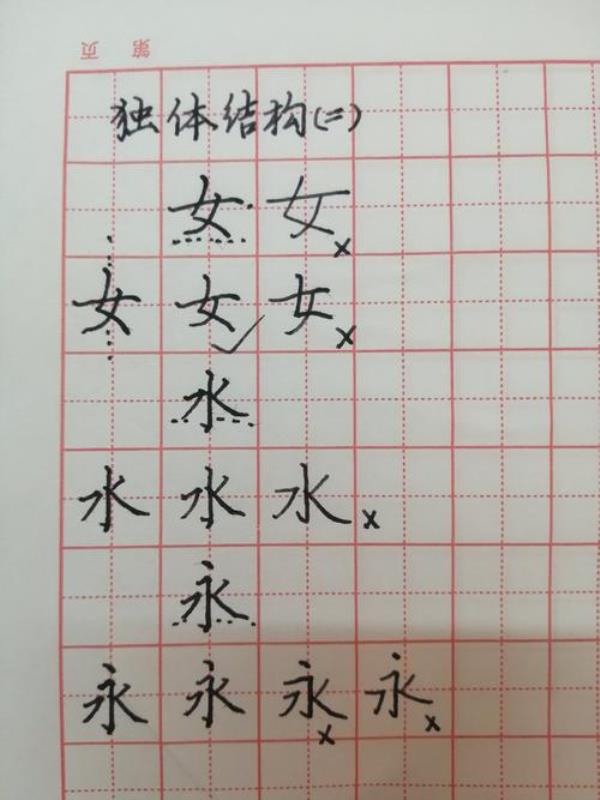 第 页
独体结构(二)
女 女 ×
女 女 ✓ 女 ×
水
水 水 水 ×
永
永 永 永 × 永 ×